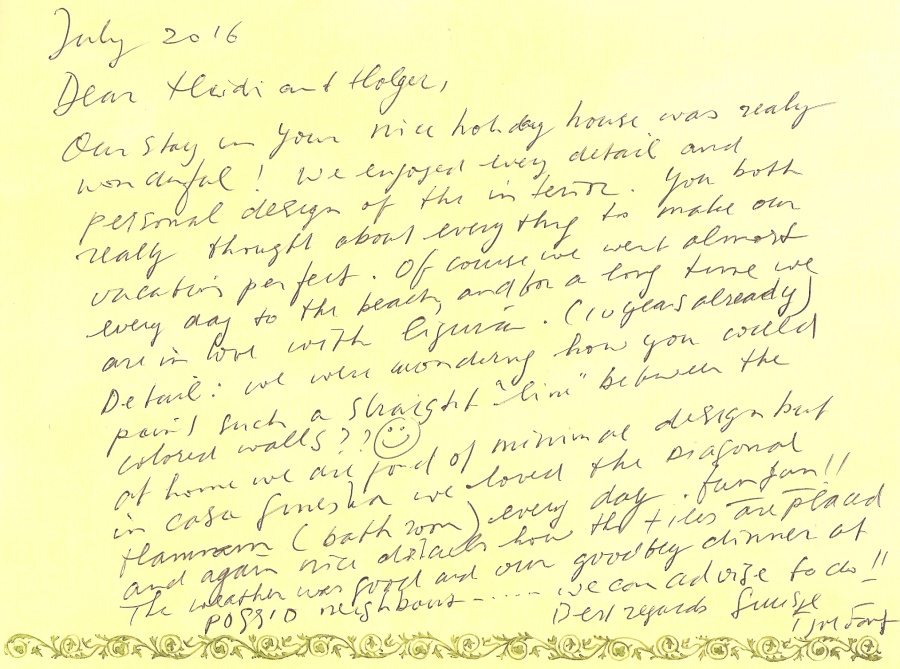 July 2016
Dear Heidi and Holger,
Our stay in your nice holiday house was realy
wonderful! We enjoyed every detail and
personal design of the interior. You both
really thought about everything to make our
vacation perfect. Of course we went almost
every day to the beach, and for a long time we
are in love with Liguria. (10 years already)
Detail: we were wondering how you could
paint such a straight "line" between the
colored walls??
at home we are fond of minimal design but
in casa Ginestra we loved the Diagonal
Hammam (bathroom) every day. fun fun!!
and again nice details how the tiles are placed
The weather was good and our goodbey dinner at
POGGIO neighbours ...... we can advise to do!!
Best regards